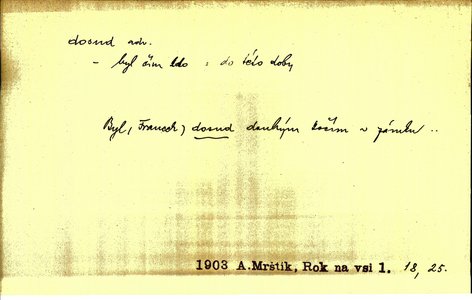 dosud adv.
- byl čím kdo : do této doby
Byl, (Franěk,) dosud druhým kočím v zámku ..
1903 A.Mrštík, Rok na vsi 1. 18, 25.